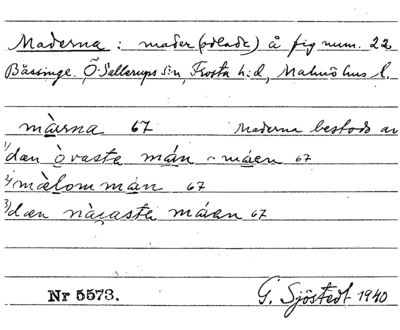 Maderna : mader (odlade) å fig num. 22
Bässinge. Ö. Sallerups sn, Frosta h:d, Malmöhus l.
màrna 67 Maderna bestods av
1) dan òvasta mán ~ máen 67
2) mæ̀lom mán 67
3) dæn nàrasta máen 67
Nr 5573. G. Sjöstedt 1940